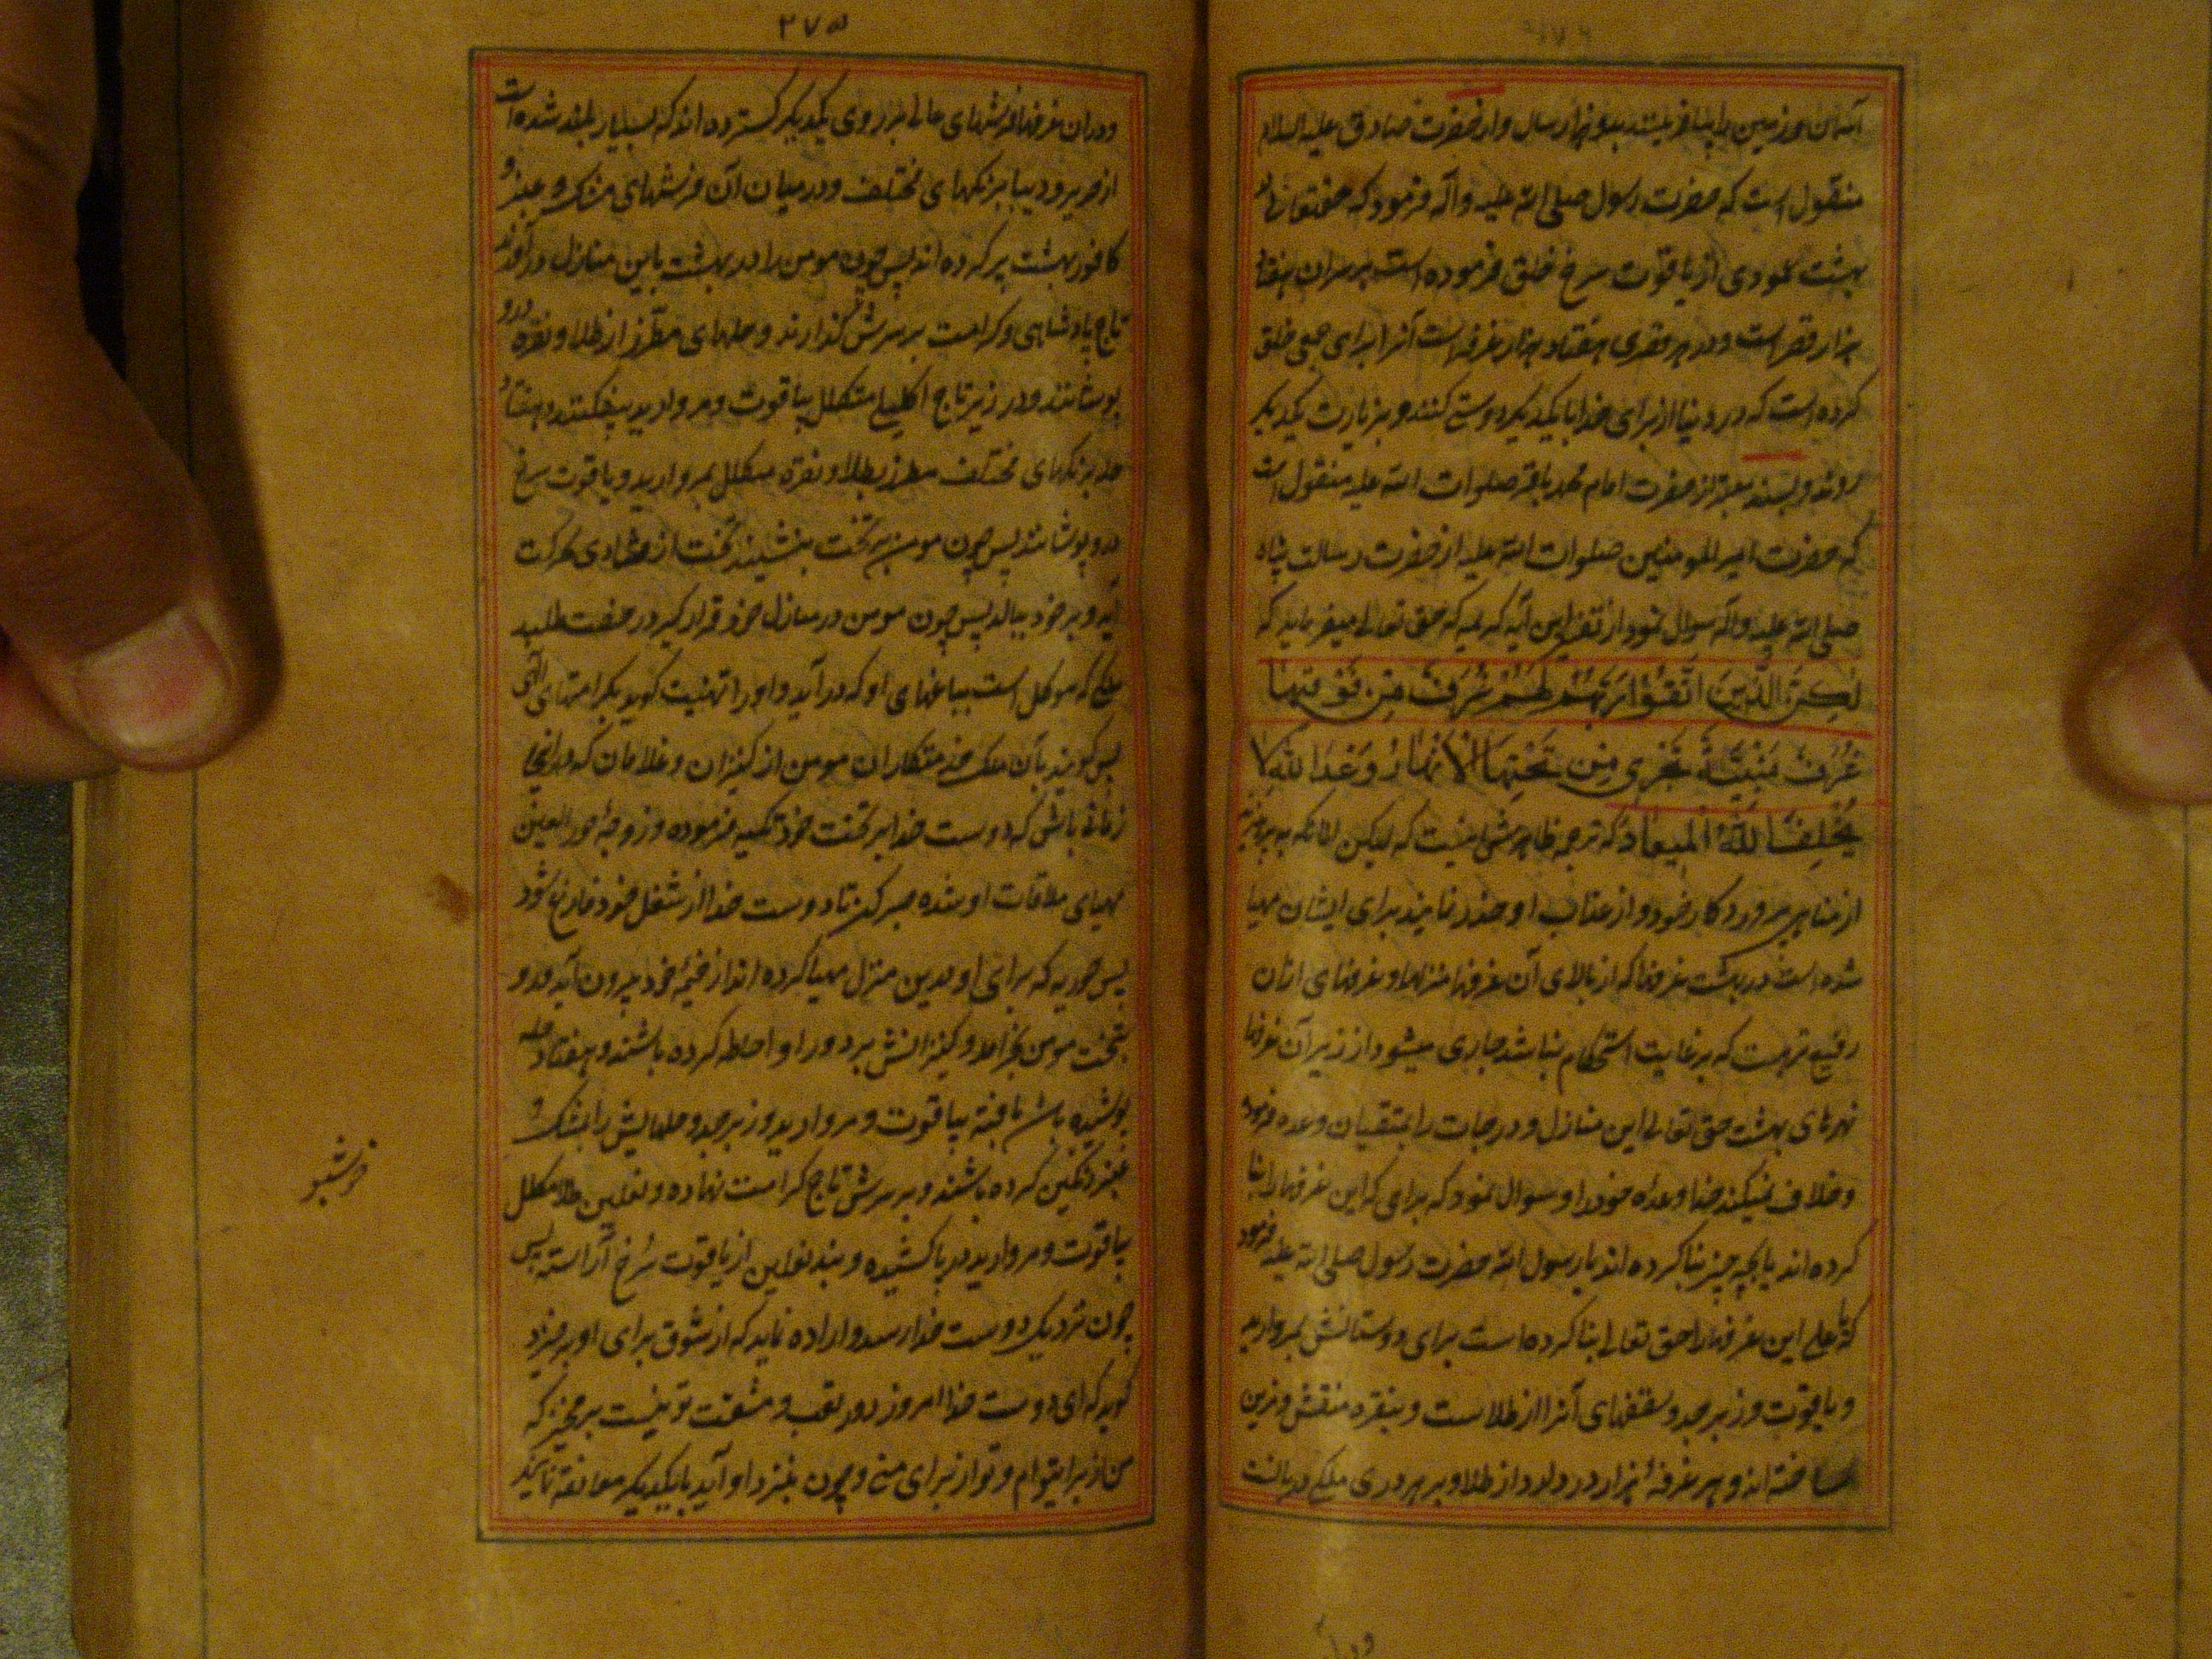 آسمان و زمین را بیافریند بدو هزار سال و از حضرت صادق علیه السلام
منقول است که حضرت رسول صلی الله علیه و آله فرمود که حقتعالی در
بهشت عمودی از یاقوت سرخ خلق فرموده است بر سر آن هفتاد
هزار قصر است و در هر قصری هفتاد هزار غرفه است آنرا برای جمعی خلق
کرده است که در دنیا از برای خدا با یکدیگر دوستی کنند و بزیارت یکدیگر
روند و بسند معتبر از حضرت امام محمد باقر صلوات الله علیه منقول است
که حضرت امیر المومنین صلوات الله علیه از حضرت رسالت پناه
صلی الله علیه و آله سوال نمود از تفسیر این آیه کریمه که حق تعالی میفرماید که
لٰکِنِ الَّذِینَ اتَّقَوْا رَبَّهُمْ لَهُمْ غُرَفٌ مِنْ فَوْقِهَا
غُرَفٌ مَبْنِیَّةٌ تَجْرِی مِنْ تَحْتِهَا الْاَنْهَارُ وَعْدَ اللّٰهِ لَا
یُخْلِفُ اللّٰهُ الْمِیعَادَ که ترجمه ظاهرش اینست که لیکن آنانکه بپرهیزند
از مناهی پروردگار خود و از عذاب او حذر نمایند برای ایشان مهیا
شده است در بهشت غرفها که از بالای آن غرفها منزلها و غرفهای از آن
رفیع تر هست که بر غایت استحکام بنا شد جاری میشود از زیر آن غرفها
نهرهای بهشت حق تعالی این منازل و درجات را بمتقیان وعده فرموده
و خلاف نمیکند خدا وعده خود را و سوال نمود که برای که این غرفها را بنا
کرده اند یا بچه چیز بنا کرده اند یا رسول الله حضرت رسول صلی الله علیه فرمود
که یا علی این غرفها را حق تعالی بنا کرده است برای دوستانش بمروارید
و یاقوت و زبرجد و سقفهای آنرا از طلاست و بنقره منقش و مزین
ساخته اند و هر غرفه هزار در دارد از طلا و بر هر دری ملکی دربانست
۲۷۵
و در آن غرفها فرشهای عالی بر روی یکدیگر گسترده اند که بسیار بلند شده است
از حریر و دیبا برنگهای مختلف و در میان آن فرشهای مشک و عنبر و
کافور بهشت پر کرده اند پس چون مومن را در بهشت باین منازل در آورند
تاج پادشاهی و کرامت بر سرش گذارند و حلهای مطرز از طلا و نقره درو
پوشانند و در زیر تاج اکلیلی مکلل بیاقوت و مروارید بیفکنند و هفتاد
حله برنگهای مختلف مطرز بطلا و نقره مکلل بمروارید و یاقوت سرخ
درو پوشانند پس چون مومن بر تخت بنشیند تخت از شادی بحرکت
آید و بر خود ببالد پس چون مومن در منازل خود قرار گیرد رخصت طلبد
ملکی که موکل است بباغهای او که در آید و او را تهنیت گوید بکرامتهای الهی
پس گویند بآن ملک خدمتکاران مومن از کنیزان و غلامان که در اینجا
زمانی باش که دوست خدا بر تخت خود تکیه فرموده و زوجهٔ حور العین
مهیای ملاقات او شده صبر کن تا دوست خدا از شغل خود فارغ شود
پس حوریه که برای او در این منزل مهیا کرده اند از خیمهٔ خود بیرون آید و رو
بتخت مومن بخرامد و کنیزانش بر دور او احاطه کرده باشند و هفتاد حله
پوشیده باشد بافته بیاقوت و مروارید و زبرجد و حلهایش را بمشک و
عنبر رنگین کرده باشند و بر سرش تاج کرامت نهاده و نعلین طلا مکلل
بیاقوت و مروارید در پا کشیده و بند نعلین از یاقوت سرخ آراسته پس
چون نزدیک دوست خدا رسد و اراده نماید که از شوق برای او برخیزد
گوید که ای دوست خدا امروز روز تعب و مشقت تو نیست برمخیز که
من از برای توام و تو از برای منی و چون بنزد او آید با یکدیگر معانقه نمایند